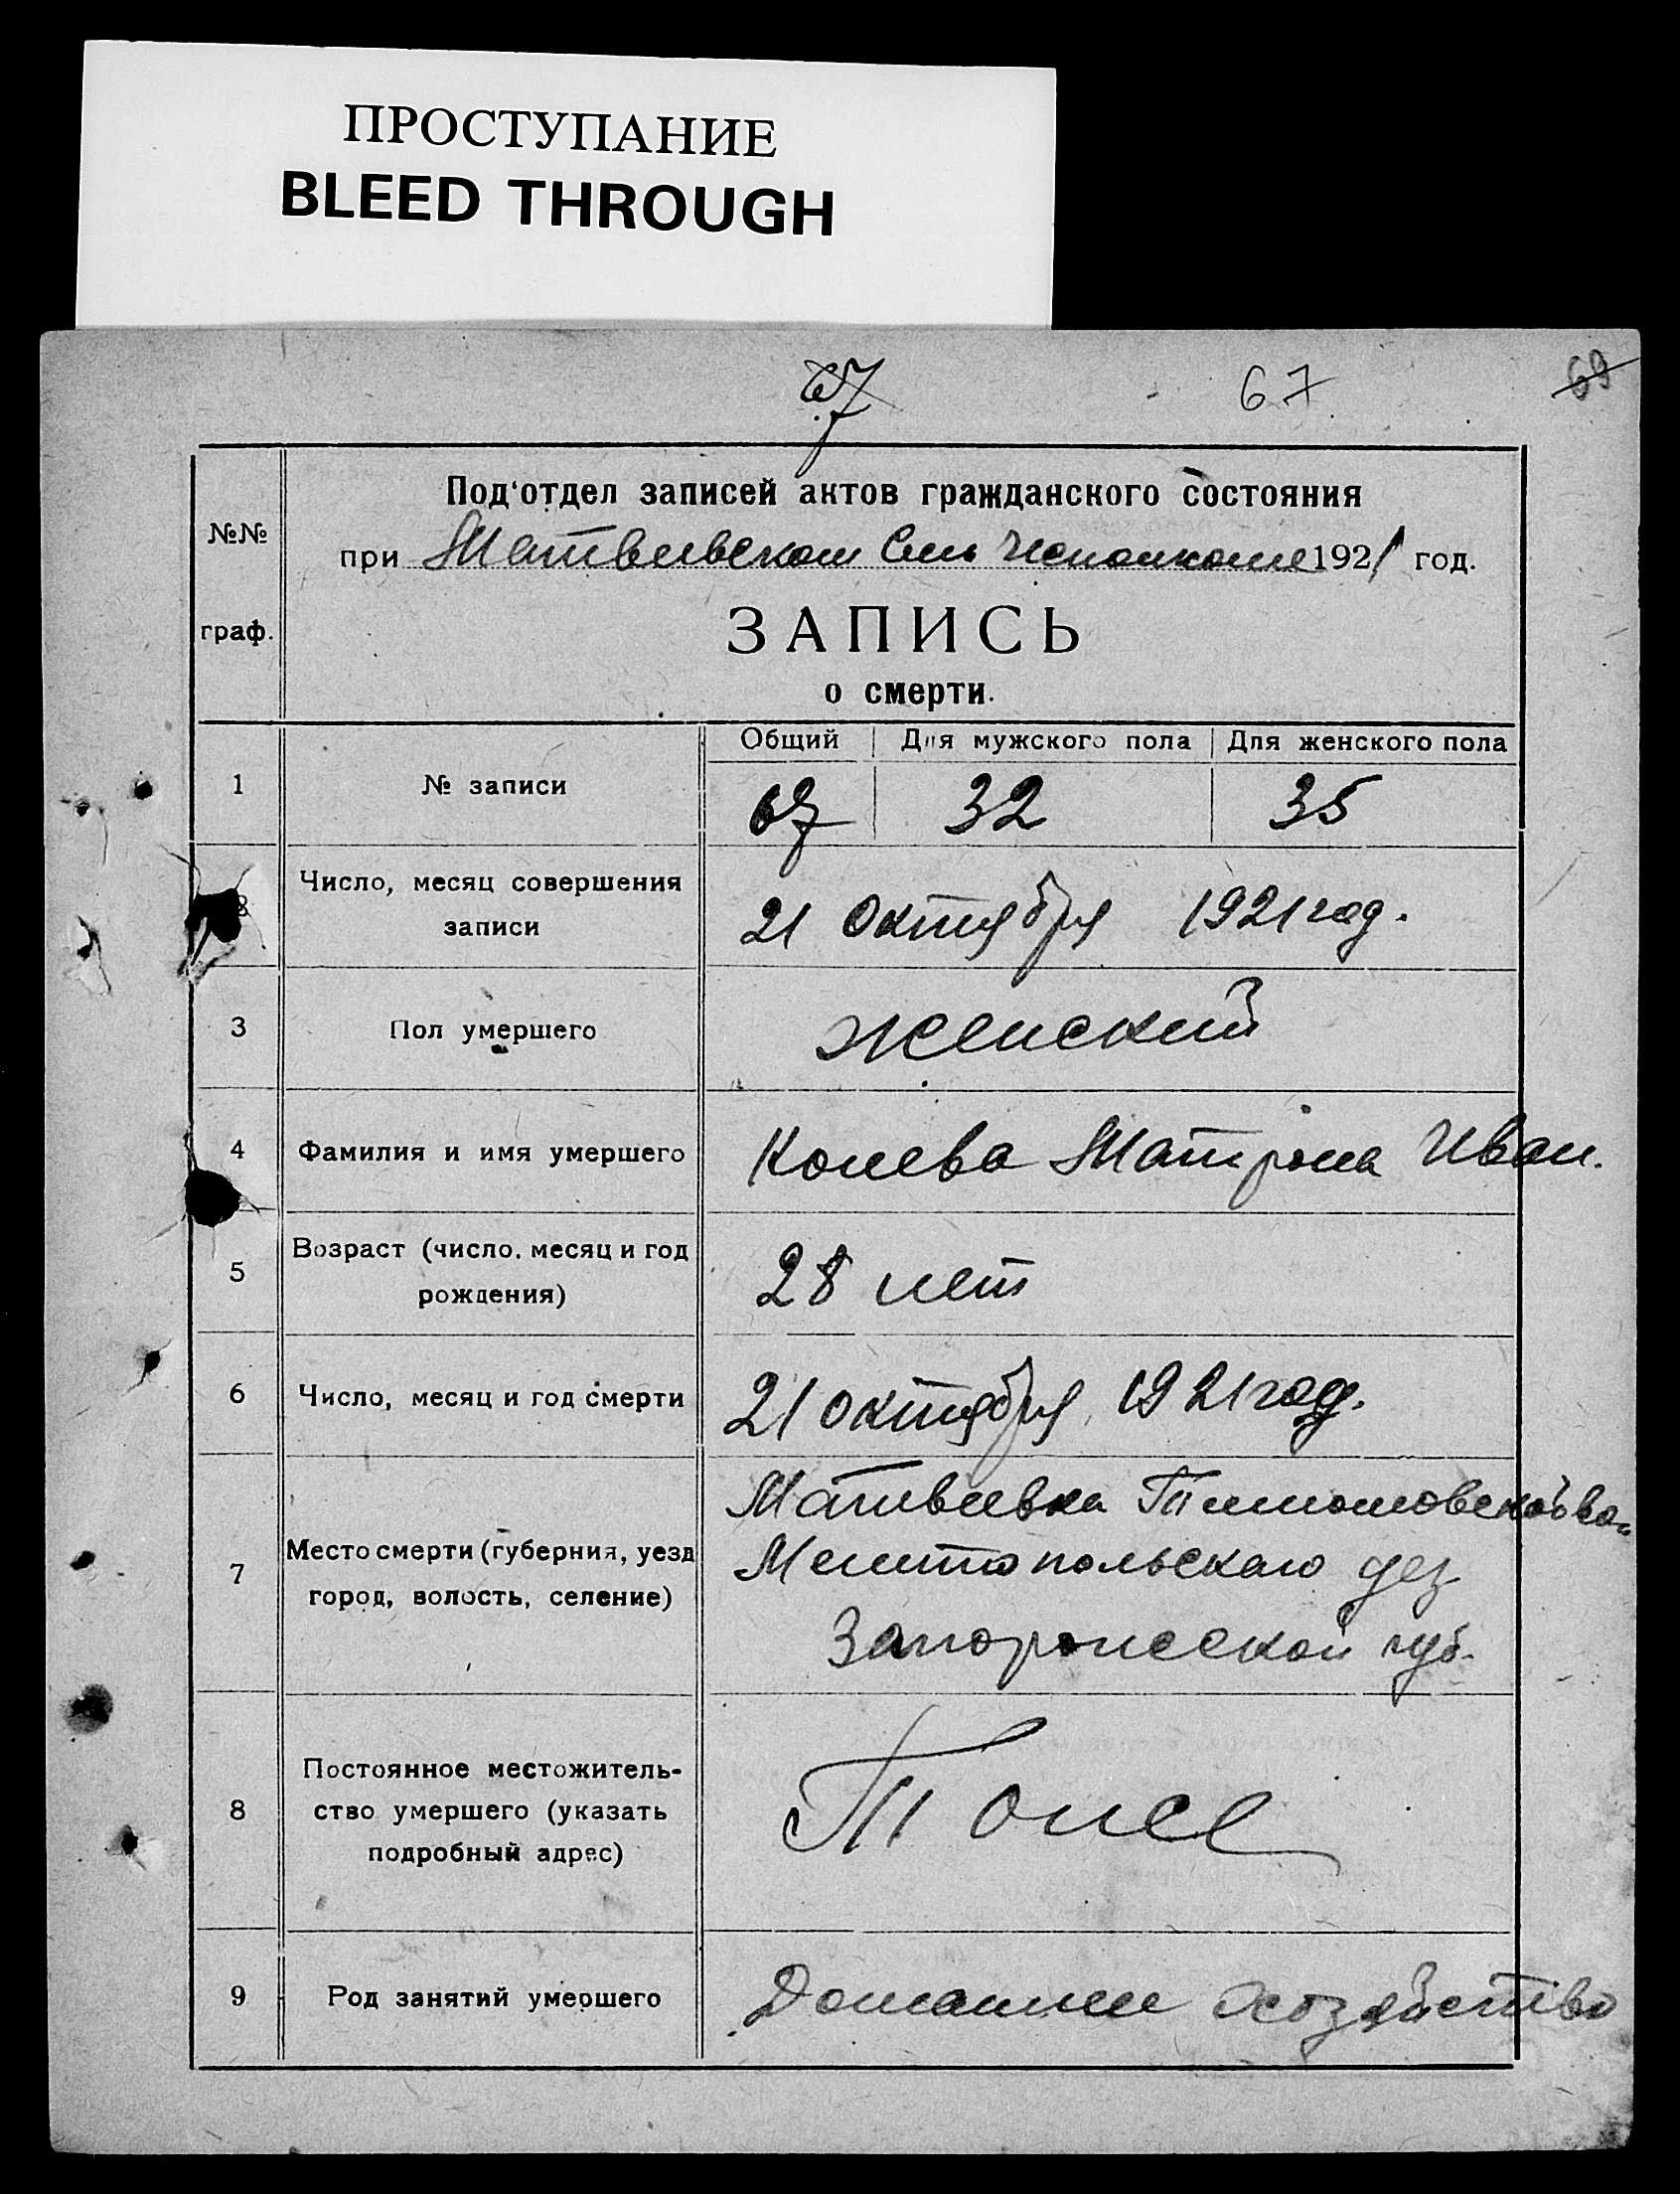 ПРОСТУПАНИЕ
BLEED THROUGH
67 67 69
Под'отдел записей актов гражданского состояния
№№ граф.
при Матвеевском Сель Исполкоме 1921 год.
ЗАПИСЬ
о смерти.
Общий Для мужского пола Для женского пола
1 № записи 67 32 35
2 Число, месяц совершения
записи 21 Октября 1921 год.
3 Пол умершего женский
4 Фамилия и имя умершего Колева Матрона Иван.
5 Возраст (число, месяц и год
рождения) 28 лет
6 Число, месяц и год смерти 21 октября 1921 год.
Матвеевка Тимошовской вол
7 Место смерти (губерния, уезд
город, волость, селение) Мелитопольскаго уез
Запорожской губ.
8 Постоянное местожитель-
ство умершего (указать
подробный адрес) Тоже
9 Род занятий умершего Домашнее хозяйство